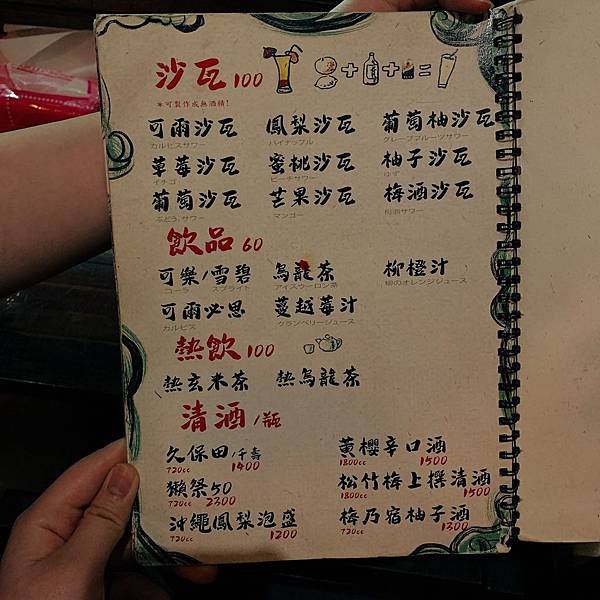 沙瓦 100
*可製作成無酒精!
可爾沙瓦 鳳梨沙瓦 葡萄柚沙瓦
カルピスサワー パイナップル グレープフルーツサワー
草莓沙瓦 蜜桃沙瓦 柚子沙瓦
イチゴ ピーチサワー ゆず
葡萄沙瓦 芒果沙瓦 梅酒沙瓦
ぶどうサワー マンゴー 梅酒サワー
飲品 60
可樂/雪碧 烏龍茶 柳橙汁
コーラ スプライト アイスウーロン茶 柳のオレンジジュース
可爾必思 蔓越莓汁
カルピス クランベリージュース
熱飲 100
熱玄米茶 熱烏龍茶
清酒/瓶
久保田/千壽 黄櫻辛口酒
720cc 1400 1800cc 1500
獺祭50 松竹梅上撰清酒
720cc 2300 1800cc 1500
沖繩鳳梨泡盛 梅乃宿柚子酒
720cc 1200 720cc 1300